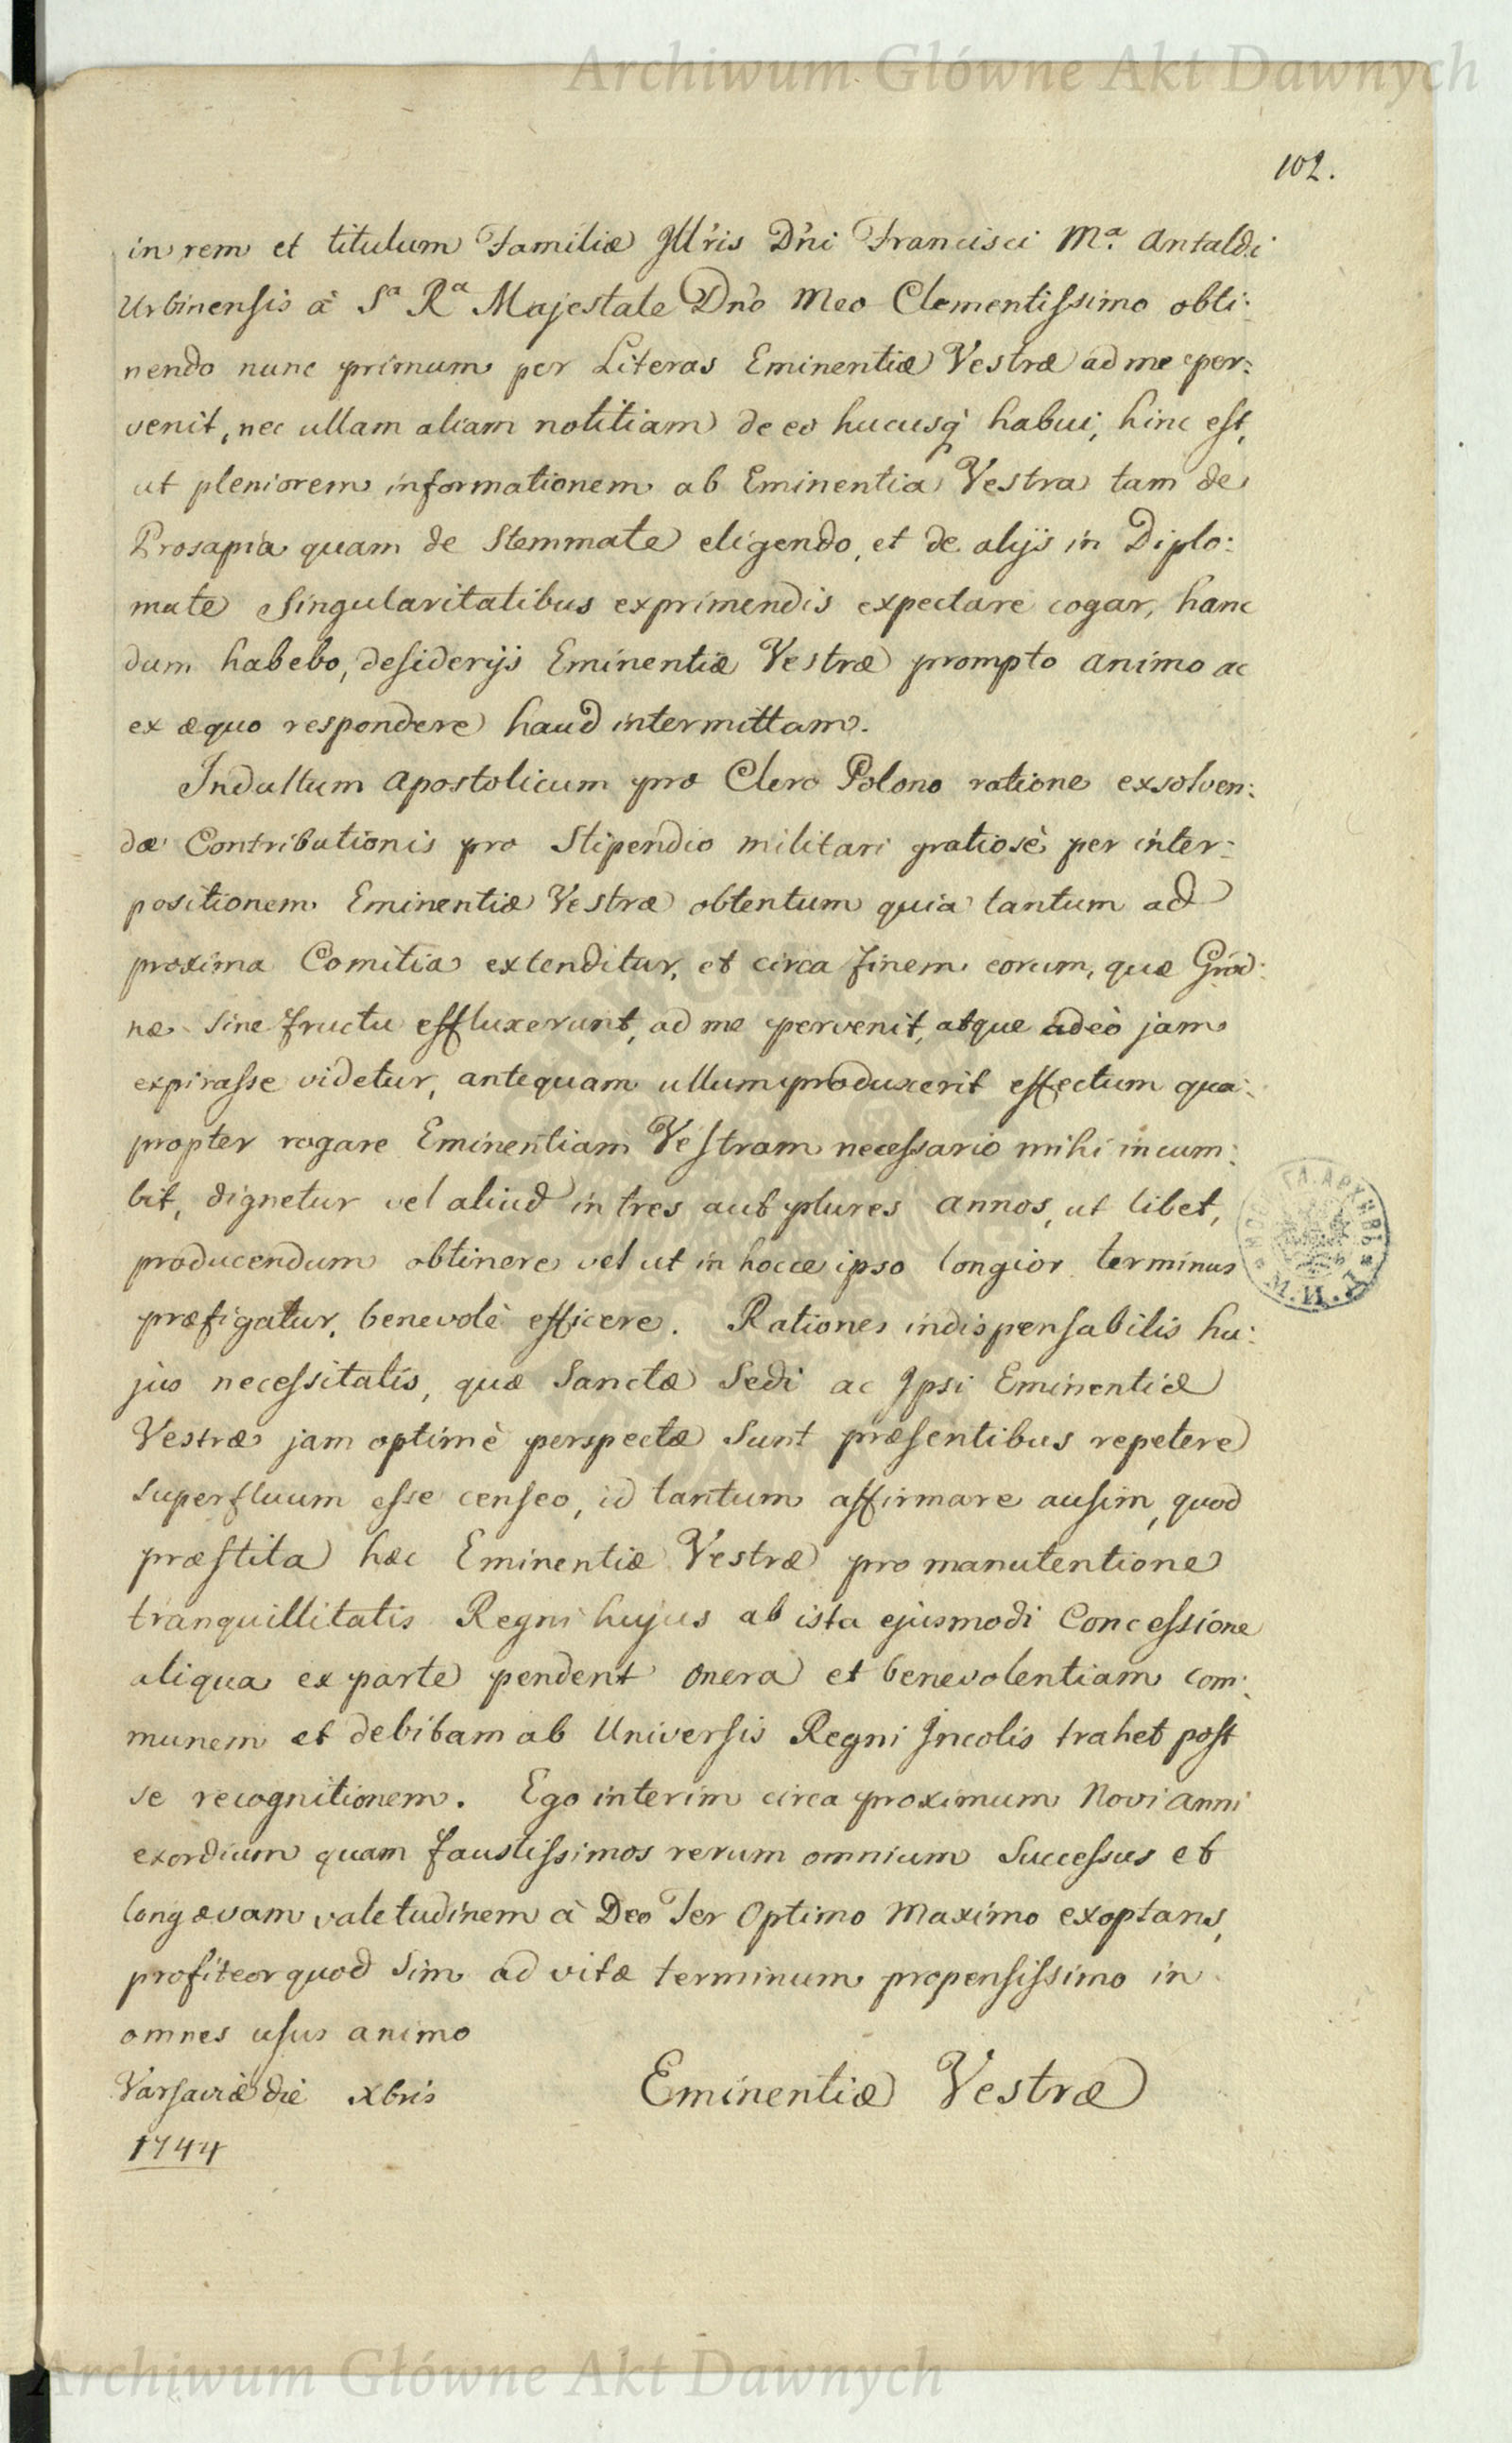 Archiwum Główne Akt Dawnych
102.
in rem et titulum Familiæ Jll'ris D'ni Francisci Mª. Antaldi
Urbinensis à Sª Rª Majestate Dn'o Meo Clementissimo obti:
nendo nunc primum per Literas Eminentiæ Vestræ ad me per:
venit, nec ullam aliam notitiam de eo hucusq' habui, hinc est,
ut pleniorem informationem ab Eminentia Vestra tam de
Prosapia quam de Stemmate eligendo, et de alijs in Diplo:
mate Singularitatibus exprimendis expectare cogar, hanc
dum habebo, desiderijs Eminentiæ Vestræ prompto animo ac
ex æquo respondere haud intermittam.
Indultum Apostolicum pro Clero Polono ratione exsolven:
dæ Contributionis pro Stipendio militari gratiosè per inter:
positionem Eminentiæ Vestræ obtentum quia tantum ad
proxima Comitia extenditur, et circa finem eorum, quæ Grod:
næ sine fructu effluxerunt, ad me pervenit, atque adeò jam
expirasse videtur, antequam ullum produxerit effectum qua:
propter rogare Eminentiam Vestram necessario mihi incum:
bit, dignetur vel aliud in tres aut plures annos, ut libet,
producendum obtinere vel ut in hocce ipso longior terminus
præfigatur, benevolè efficere. Rationes indispensabilis hu:
jus necessitatis, quæ Sanctæ Sedi ac Ipsi Eminentiæ
Vestræ jam optimè perspectæ sunt præsentibus repetere
superfluum esse censeo, id tantum affirmare ausim, quod
præstita hæc Eminentiæ Vestræ pro manutentione
tranquillitatis Regni hujus ab ista ejusmodi Concessione
aliqua ex parte pendent onera et benevolentiam com:
munem et debitam ab Universis Regni Incolis trahet post
se recognitionem. Ego interim circa proximum Novi anni
exordium quam faustissimos rerum omnium Successus et
longævam valetudinem à Deo Ter Optimo Maximo exoptans,
profiteor quod sim ad vitæ terminum propensissimo in
omnes usus animo
Varsaviæ die xbris
Eminentiæ Vestræ
1744
Archiwum Główne Akt Dawnych